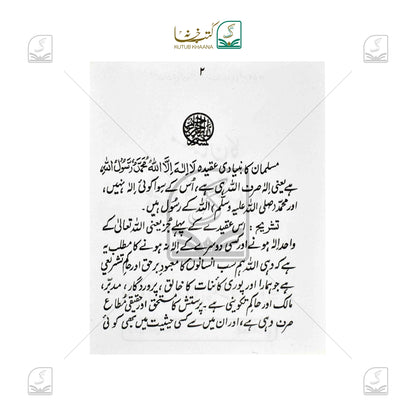 کتب خانہ
KUTUB KHAANA
۲
مسلمان کا بنیادی عقیدہ لَا اِلٰهَ اِلَّا اللهُ مُحَمَّدٌ رَّسُوْلُ اللهِ
ہے یعنی الٰہ صرف اللہ ہی ہے، اُس کے سوا کوئی الٰہ نہیں،
اور محمد (صلی اللہ علیہ وسلم) اللہ کے رسول ہیں۔
تشریح : اِس عقیدے کے پہلے جُز یعنی اللہ تعالیٰ کے
واحد الٰہ ہونے اور کسی دوسرے کے الٰہ نہ ہونے کا مطلب یہ
ہے کہ وہی اللہ ہم سب انسانوں کا معبودِ برحق اور حاکمِ تشریعی
ہے جو ہمارا اور پوری کائنات کا خالق، پروردگار، مدبّر،
مالک اور حاکمِ تکوینی ہے۔ پرستش کا مُستحق اور حقیقی مُطاع
صرف وہی ہے، اور ان میں سے کسی حیثیت میں بھی کوئی